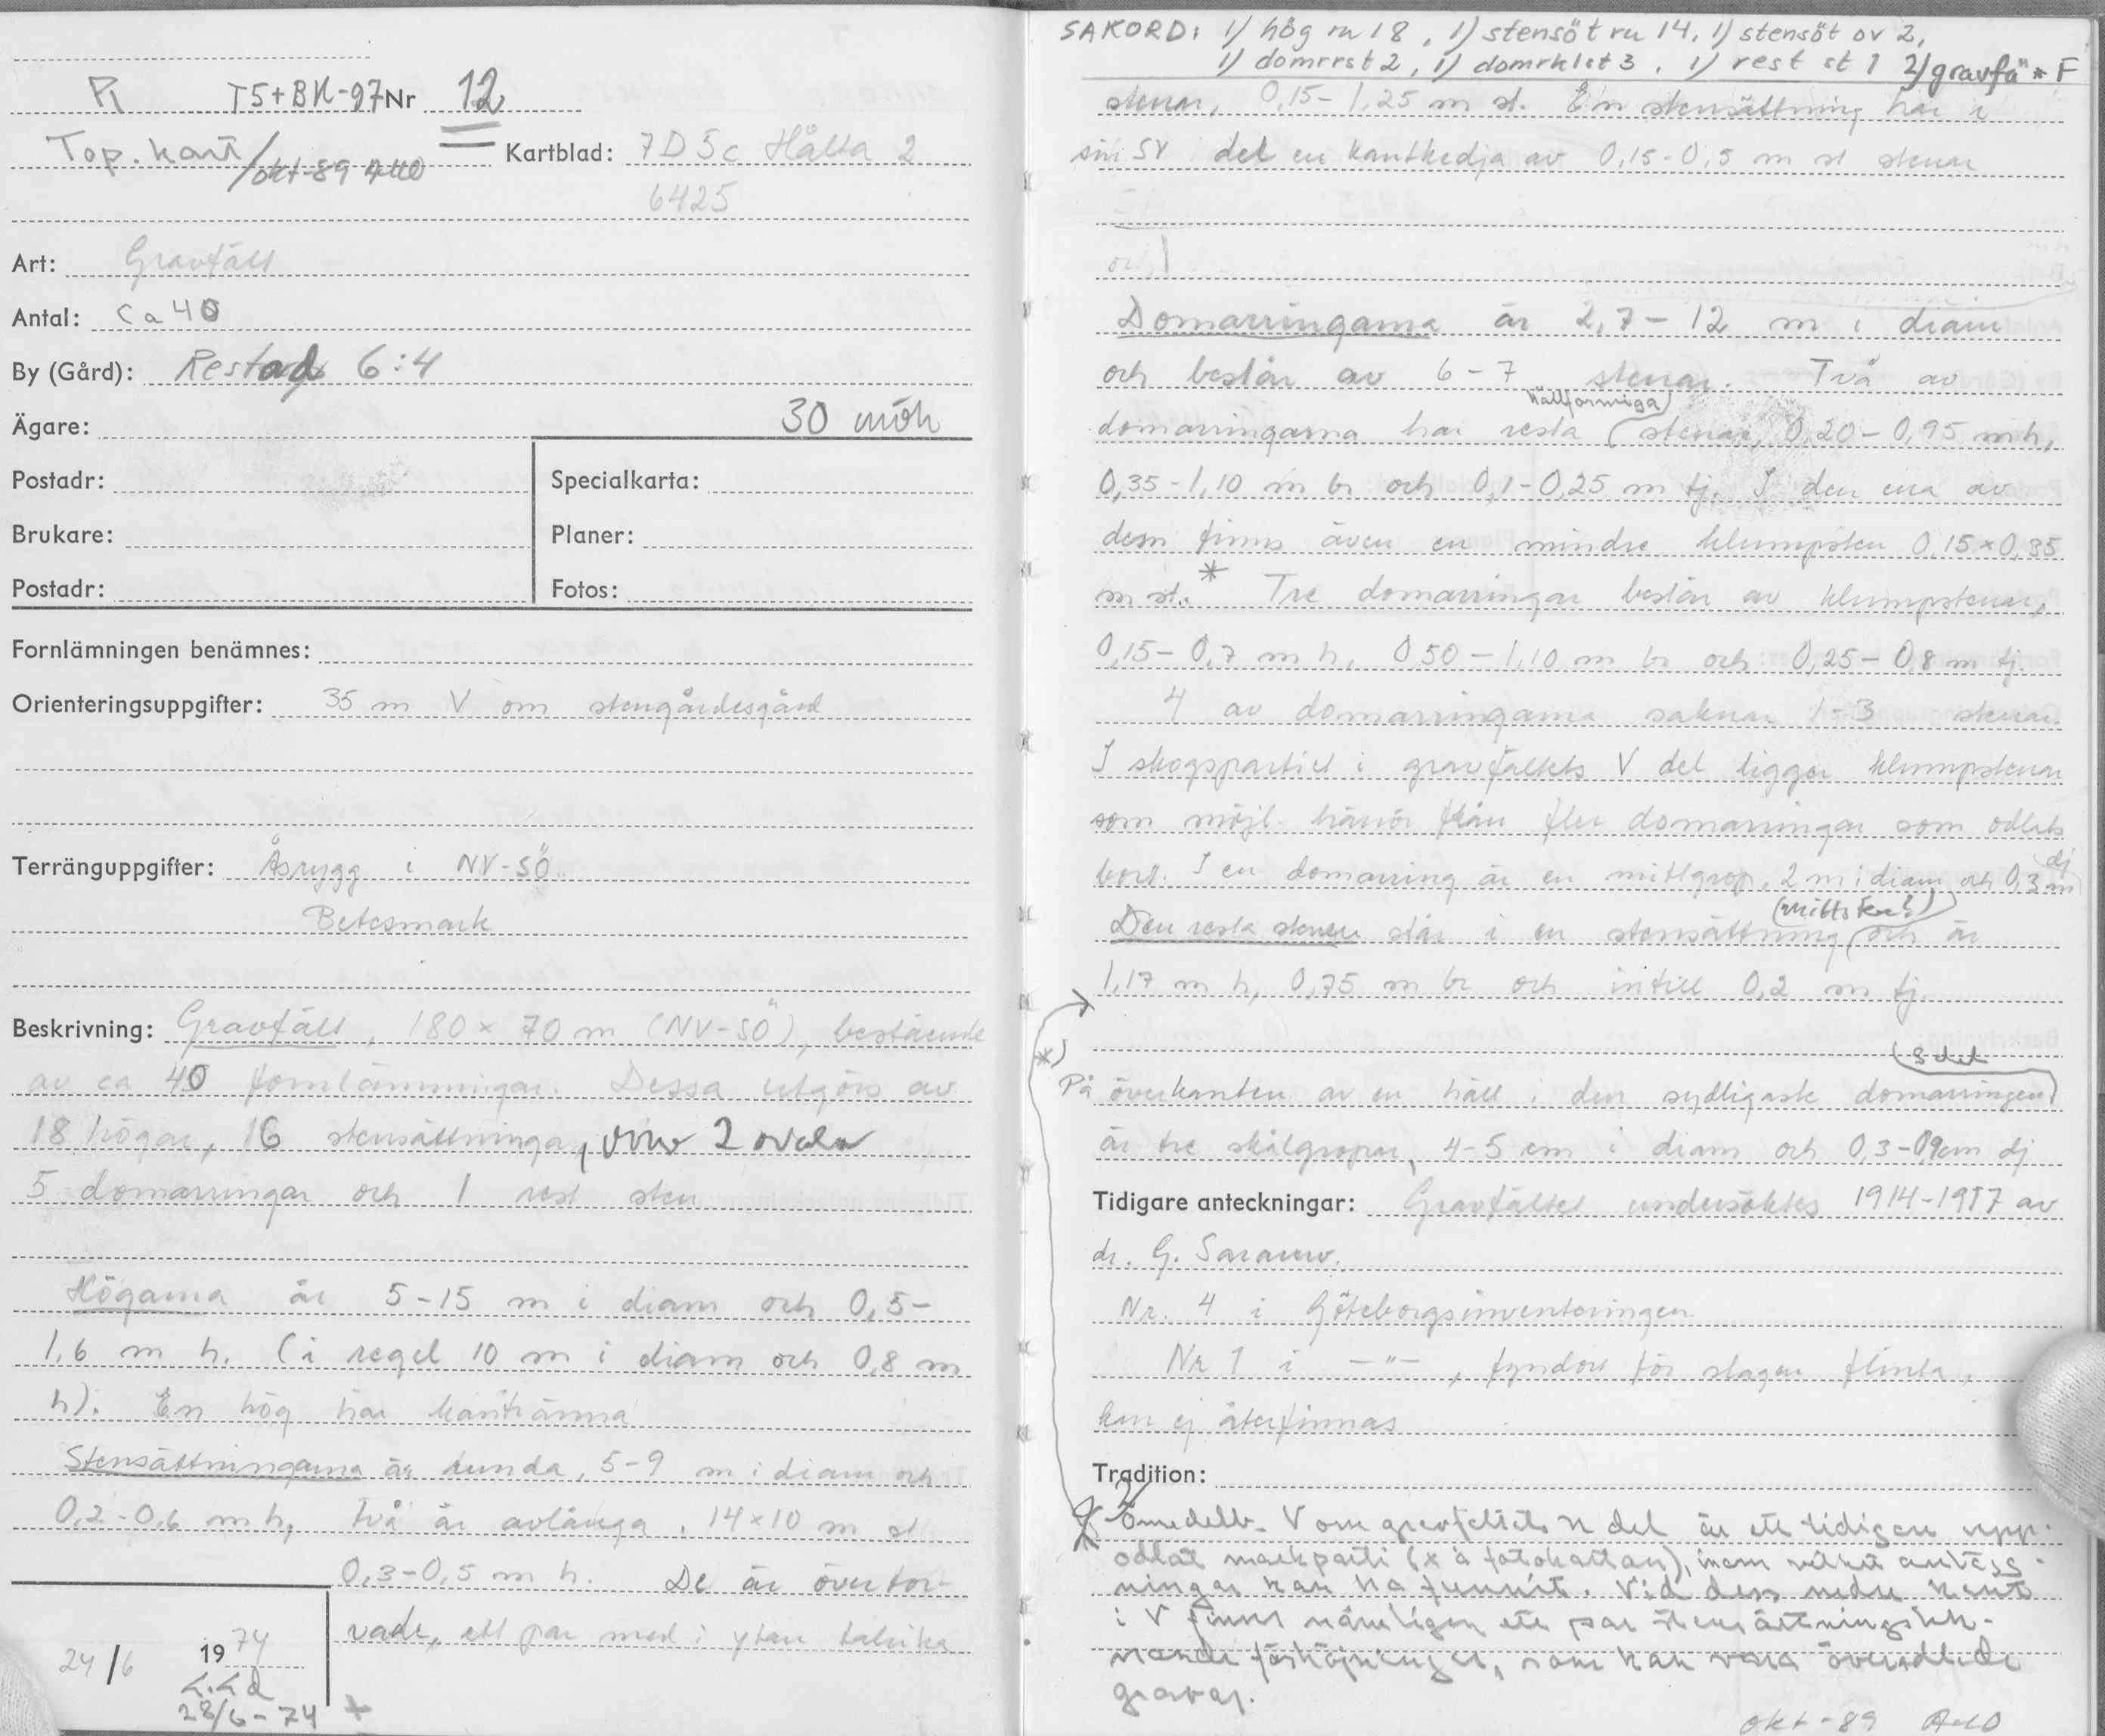 R T5+BK-97 Nr 12
Top. kart / okt-89 Kartblad: 7D5c Hålta 2
6425
Art: Gravfält
Antal: Ca 40
By (Gård): Restad 6:4
Ägare: 30 möh
Postadr: Specialkarta:
Brukare: Planer:
Postadr: Fotos:
Fornlämningen benämnes:
Orienteringsuppgifter: 35 m V om stengärdesgård
Terränguppgifter: Åsrygg i NV-SÖ.
Betesmark
Beskrivning: Gravfält, 180 × 70 m (NV-SÖ), bestående
av ca 40 fornlämningar. Dessa utgörs av
18 högar, 16 stensättningar, varav 2 ovala
5 domarringar och 1 rest sten
Högarna är 5-15 m i diam och 0,5-
1,6 m h. (i regel 10 m i diam och 0,8 m
h). En hög har kantränna
Stensättningarna är runda, 5-9 m i diam och
0,2-0,6 m h, två är avlånga, 14×10 m st
0,3-0,5 m h. De är övertor-
vade, ett par med i ytan talrika
24/6 1974
L.Ld
28/6-74 +
SAKORD: 1) hög ru 18, 1) stensöt ru 14, 1) stensöt ov 2,
1) domrrst 2, 1) domrklst 3, 1) rest st 1 2) gravfä * F
stenar, 0,15-1,25 m st. En stensättning har i
sin SV del en kantkedja av 0,15-0,5 m st stenar
och 1
Domarringarna är 2,7-12 m i diam
och består av 6-7 stenar. Två av
hällformiga
domarringarna har resta (stenar, 0,20-0,95 m h,
0,35-1,10 m br och 0,1-0,25 m tj. I den ena av
dem finns även en mindre klumpsten 0,15×0,35
m st.* Tre domarringar består av klumpstenar,
0,15-0,7 m h, 0,50-1,10 m br och 0,25-0,8 m tj.
4 av domarringarna saknar 1-3 stenar.
I skogspartiet i gravfältets V del ligger klumpstenar
som möjl. härrör från fler domarringar som odlats
bort. I en domarring är en mittgrop, 2 m i diam och 0,3 m dj
(mittsten?)
Den resta stenen står i en stensättning och är
1,17 m h, 0,75 m br och intill 0,2 m tj.
(S del
*) På överkanten av en häll i den sydligaste domarringen)
är tre skålgropar, 4-5 cm i diam och 0,3-0,9 cm dj
Tidigare anteckningar: Gravfältet undersöktes 1914-1917 av
dr. G. Sarauw.
Nr. 4 i Göteborgsinventeringen
Nr 1 i -"-, fyndort för slagen flinta,
kan ej återfinnas
Tradition:
2) Omedelb. V om gravfältets N del är ett tidigare upp-
odlat markparti (x å fotokartan), inom vilket anlägg-
ningar kan ha funnits. Vid dess nedre kant
i V finns nämligen ett par stensättningslik-
nande förhöjningar, som kan vara överodlade
gravar.
okt-89